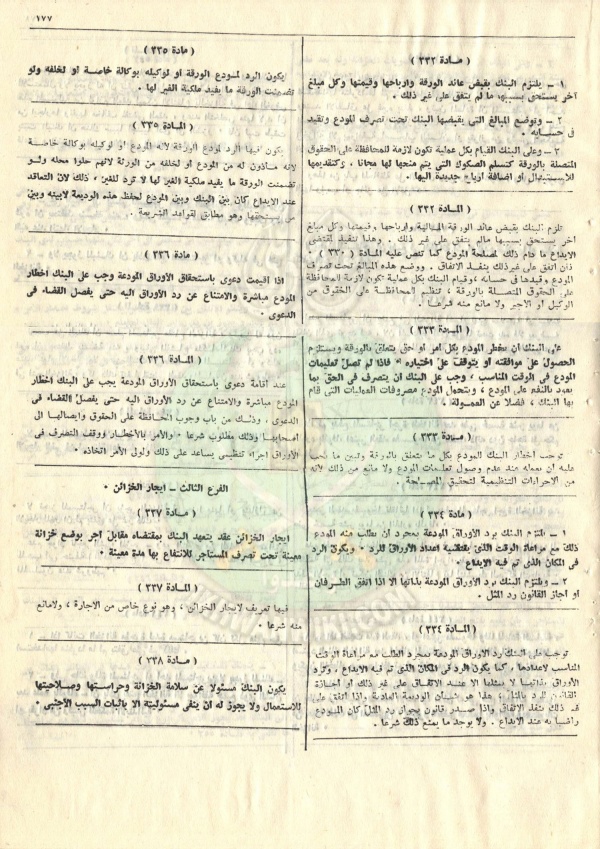 ١٧٧
( مادة ٣٣٢ )
١ – يلتزم البنك بقبض عائد الورقة وارباحها وقيمتها وكل مبلغ
آخر يستحق بسببها ما لم يتفق على غير ذلك .
٢ – وتوضع المبالغ التى يقبضها البنك تحت تصرف المودع وتقيد
فى حسابه .
٣ – وعلى البنك القيام بكل عملية تكون لازمة للمحافظة على الحقوق
المتصلة بالورقة كتسلم الصكوك التى يتم منحها لها مجانا ، وكتقديمها
للاستبدال أو اضافة أرباح جديدة اليها .
( المادة ٣٣٢ )
تلزم البنك بقبض عائد الورقة المالية وارباحها وقيمتها وكل مبلغ
آخر يستحق بسببها مالم يتفق على غير ذلك . وهذا تنفيذ لمقتضى
الايداع ما دام ذلك لمصلحة المودع كما تنص عليه المادة ( ٣٣٠ )
فان اتفق على غير ذلك ينفذ الاتفاق . ووضع هذه المبالغ تحت تصرف
المودع وقيدها فى حسابه . وقيام البنك بكل عملية تكون لازمة للمحافظة
على الحقوق المتصلة بالورقة ، تنظيم للمحافظة على الحقوق من
الوكيل أو الأجير ولا مانع منه شرعا .
( المادة ٣٣٣ )
على البنك أن يخطر المودع بكل أمر أو حق يتعلق بالورقة ويستلزم
الحصول على موافقته أو يتوقف على اختياره . فاذا لم تصل تعليمات
المودع فى الوقت المناسب ، وجب على البنك أن يتصرف فى الحق بما
يعود بالنفع على المودع ، ويتحمل المودع مصروفات العمليات التى قام
بها البنك ، فضلا عن العمولة .
( مادة ٣٣٣ )
توجب اخطار البنك للمودع بكل ما يتعلق بالورقة وتبين ما يجب
عليه أن يعمله عند عدم وصول تعليمات المودع ولا مانع من ذلك لأنه
من الاجراءات التنظيمية لتحقيق المصلحة .
( مادة ٣٣٤ )
١ – يلتزم البنك برد الأوراق المودعة بمجرد أن يطلب منه المودع
ذلك مع مراعاة الوقت الذى يقتضيه اعداد الأوراق للرد . ويكون الرد
فى المكان الذى تم فيه الايداع .
٢ – ويلتزم البنك برد الأوراق المودعة بذاتها الا اذا اتفق الطرفان
أو أجاز القانون رد المثل .
( المادة ٣٣٤ )
توجب على البنك رد الأوراق المودعة بمجرد الطلب مع مراعاة الوقت
المناسب لاعدادها . كما يكون الرد فى المكان الذى تم فيه الايداع ، وترد
الأوراق بذاتها لا بمثلها الا عند الاتفاق على غير ذلك أو أجازة
القانون للرد بالمثل ، هذا هو شأن الوديعة العادية واذا اتفق على
غير ذلك ينفذ الاتفاق واذا صدر قانون بجواز رد المثل كان المودع
راضيا به عند الايداع . ولا يوجد ما يمنع ذلك شرعا .
( مادة ٣٣٥ )
يكون الرد لمودع الورقة أو لوكيله بوكالة خاصة أو لخلفه ولو
تضمنت الورقة ما يفيد ملكية الغير لها .
( المادة ٣٣٥ )
يكون فيها الرد لمودع الورقة لأنه المودع أو لوكيله بوكالة خاصة
لأنه مأذون له من المودع أو لخلفه من الورثة لأنهم حلوا محله ولو
تضمنت الورقة ما يفيد ملكية الغير لها لا ترد للغير ، ذلك لأن التعاقد
عند الايداع كان بين البنك وبين المودع لحفظ هذه الوديعة لابينه وبين
من يستحقها وهو مطابق لقواعد الشريعة .
( مادة ٣٣٦ )
اذا أقيمت دعوى باستحقاق الأوراق المودعة وجب على البنك اخطار
المودع مباشرة والامتناع عن رد الأوراق اليه حتى يفصل القضاء فى
الدعوى .
( المادة ٣٣٦ )
عند اقامة دعوى باستحقاق الأوراق المودعة يجب على البنك اخطار
المودع مباشرة والامتناع عن رد الأوراق اليه حتى يفصل القضاء فى
الدعوى ، وذلك من باب وجوب المحافظة على الحقوق وايصالها الى
أصحابها وذلك مطلوب شرعا . والأمر بالأخطار ووقف التصرف فى
الأوراق اجراء تنظيمى يساعد على ذلك ولولى الأمر اتخاذه .
الفرع الثالث – ايجار الخزائن .
( مادة ٣٣٧ )
ايجار الخزائن عقد يتعهد البنك بمقتضاه مقابل أجر بوضع خزانة
معينة تحت تصرف المستأجر للانتفاع بها مدة معينة .
( المادة ٣٣٧ )
فيها تعريف لايجار الخزائن ، وهو نوع خاص من الاجارة ، ولامانع
منه شرعا .
( مادة ٣٣٨ )
يكون البنك مسئولا عن سلامة الخزانة وحراستها وصلاحيتها
للاستعمال ولا يجوز له أن ينفى مسئوليته الا باثبات السبب الأجنبى .